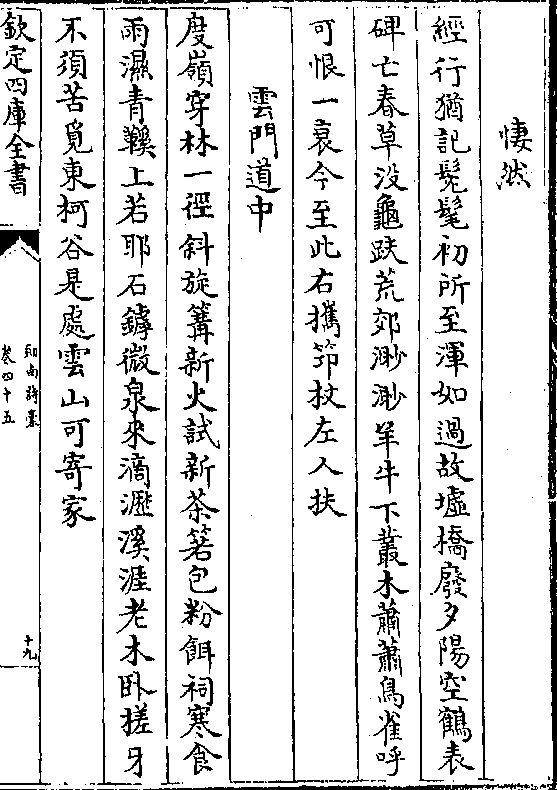 悽然
經行猶記髧髦初所至渾如過故墟橋廢夕陽空鶴表
碑亡春草没龜趺荒郊渺渺羊牛下叢木蕭蕭鳥雀呼
可恨一衰今至此右攜笻杖左人扶
雲門道中
度嶺穿林一徑斜旋篝新火試新茶箬包粉餌祠寒食
雨濕青鞵上若耶石罅微泉來滴瀝溪涯老木卧搓牙
不須苦覓東柯谷是處雲山可寄家
欽定四庫全書
劒南詩藁
卷四十五
十九